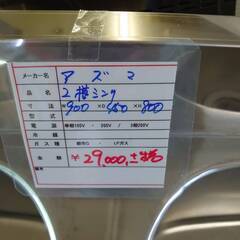 メーカー名 アズマ
品名 2槽シンク
寸法 900×450×800
型式
電源 単相100V ・ 200V / 3相200V
冷媒
ガス種 都市G ・ LPガス
金額 ¥29,000,